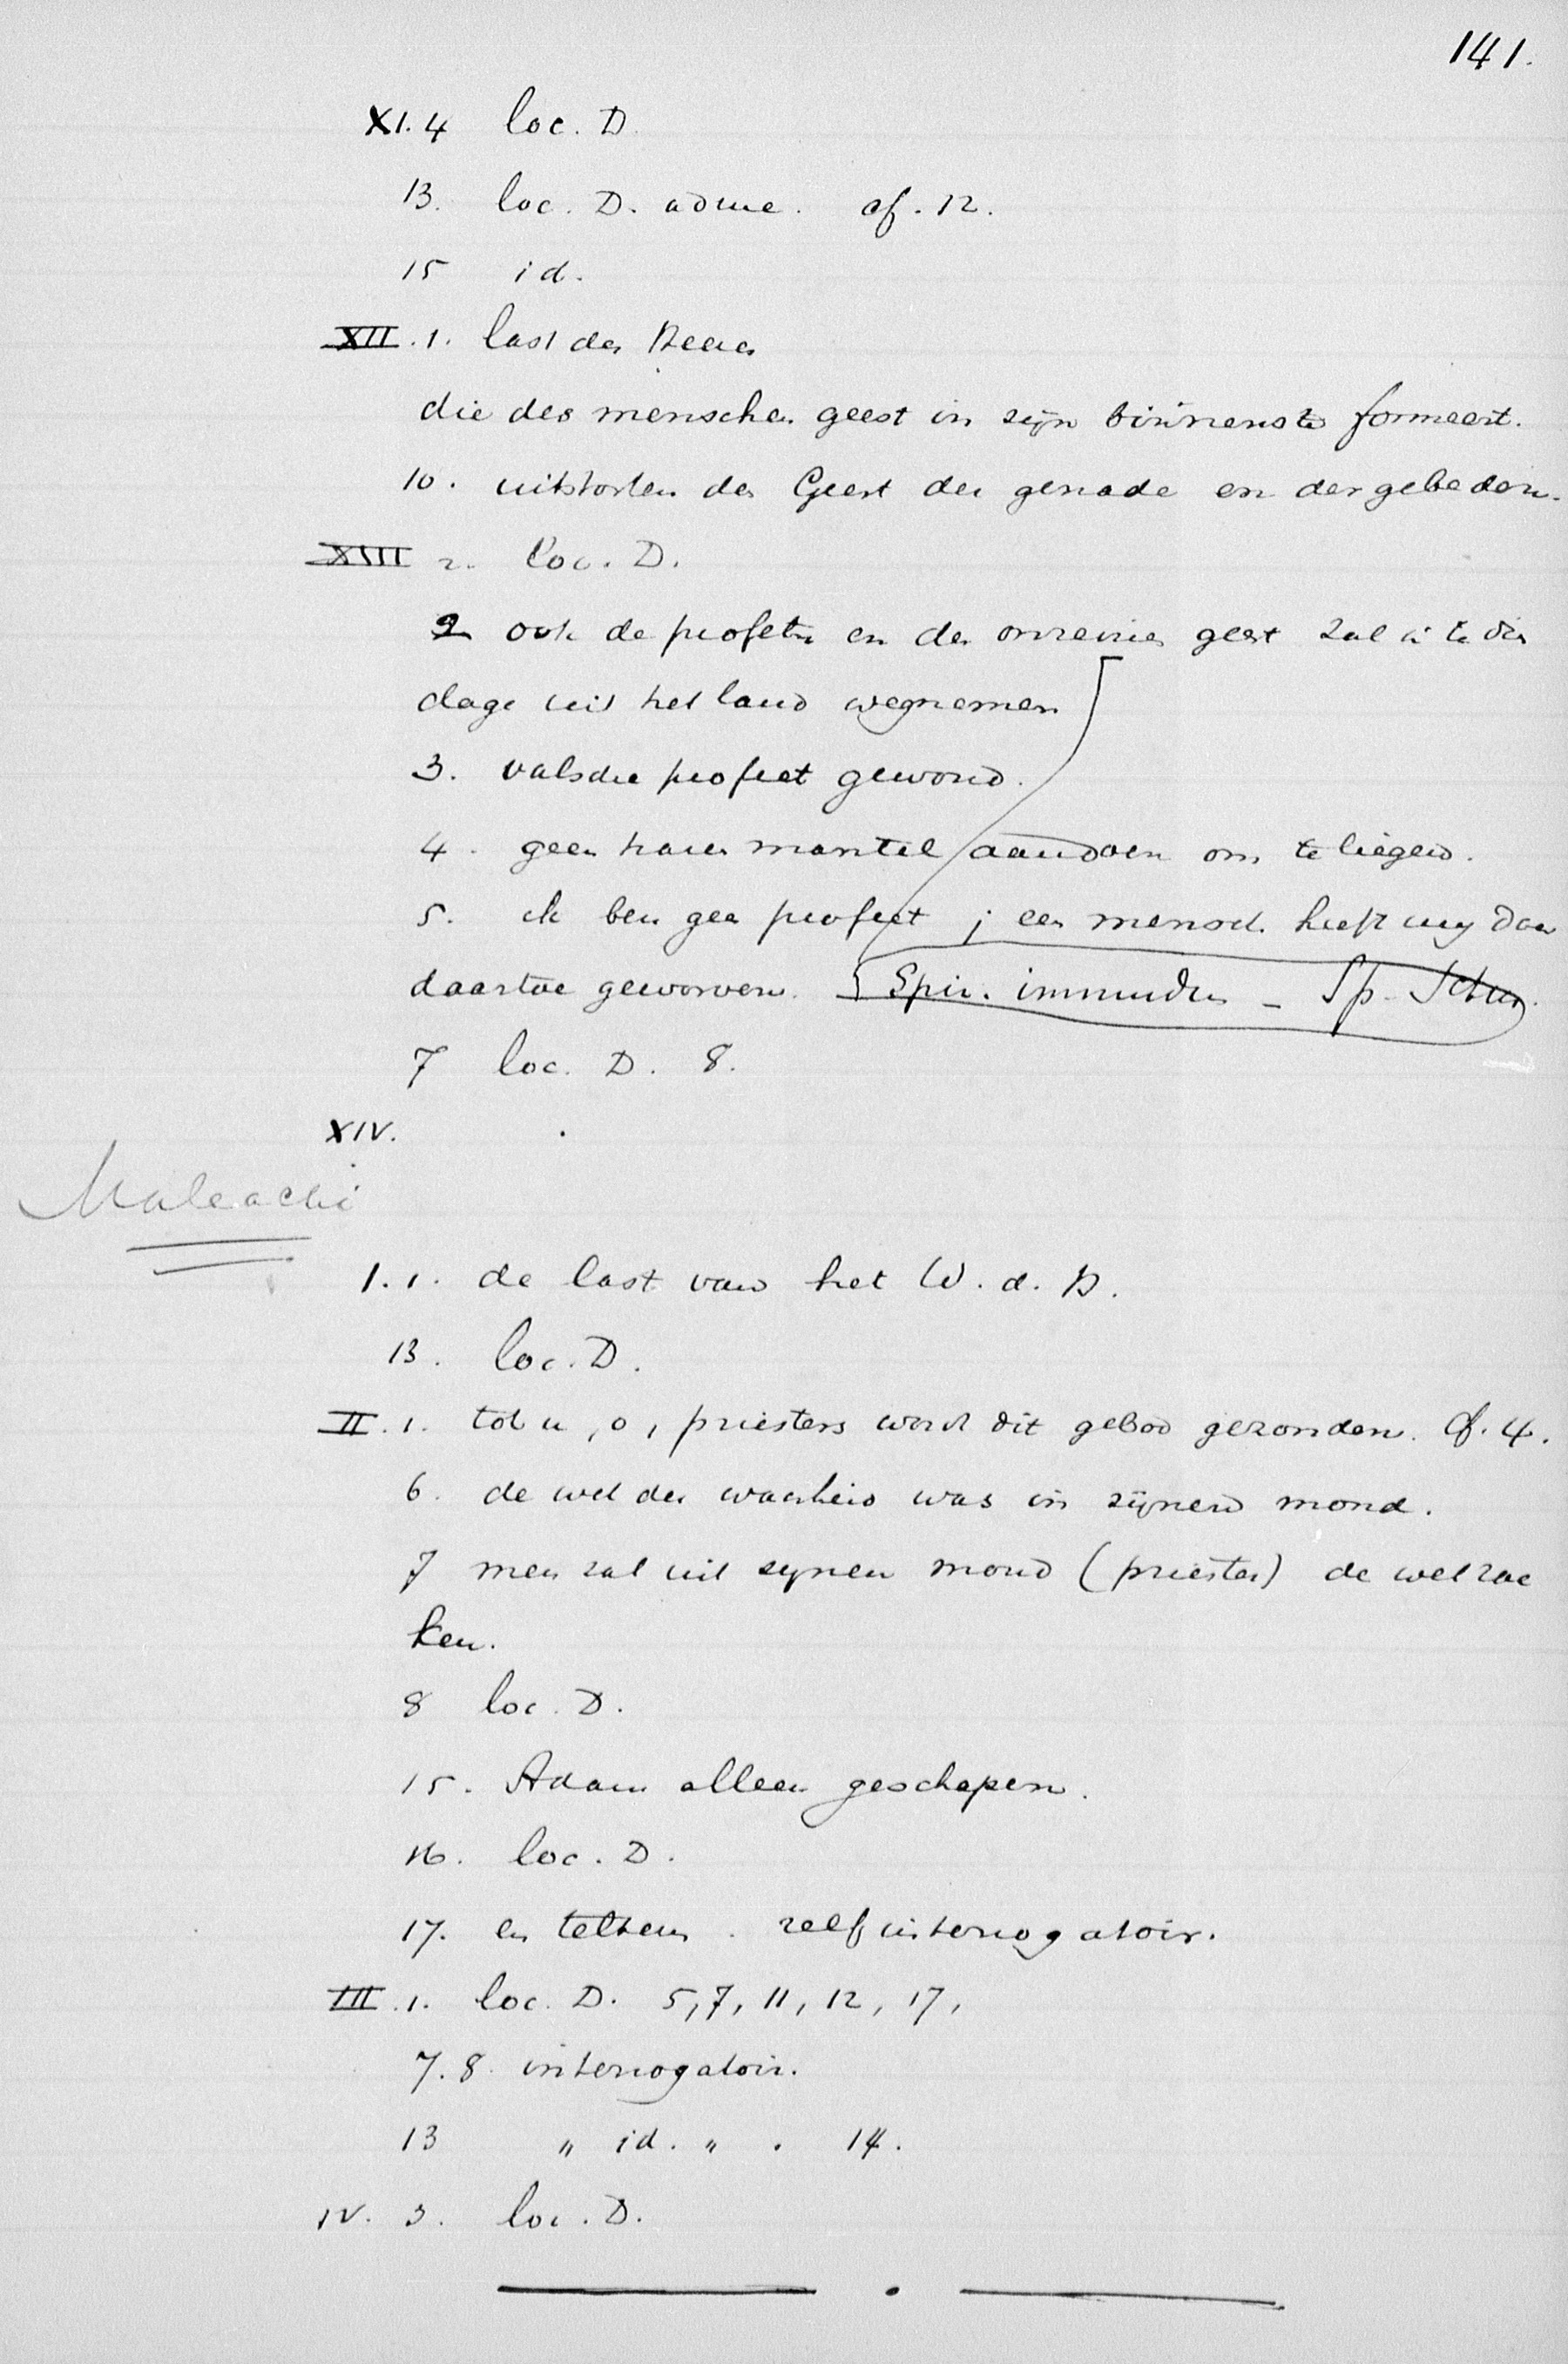 141.
XI. 4 loc. D.
13. loc. D. ad me. cf. 12.
15 id.
XII. 1. last des Heeren
die des menschen geest in zijn binnenste formeert.
10. uitstorten den Geest der genade en der gebeden.
XIII 2. loc. D.
2 ook de profeten en den onreinen geest zal ik te dien
dage uit het land wegnemen
3. valsche profeet gewond.
4. geen haren mantel aandoen om te liegen.
5. ik ben geen profeet ; een mensch heeft mij
daartoe geworven. Spir. immundus - Sp.
7 loc. D. 8.
XIV.
Maleachi
I. 1. de last van het W. d. H.
13. loc. D.
II. 1. tot u, o, priesters wordt dit gebod gezonden. Cf. 4.
6. de wet der waarheid was in zijnen mond.
7 men zal uit zynen mond (priester) de wet zoe
ken.
8 loc. D.
15. Adam alleen geschapen.
16. loc. D.
17. en telkens. zelf interrogatoir.
III. 1. loc. D. 5, 7, 11, 12, 17,
7. 8. interrogatoir.
13 " id. " . 14.
IV. 3. loc. D.